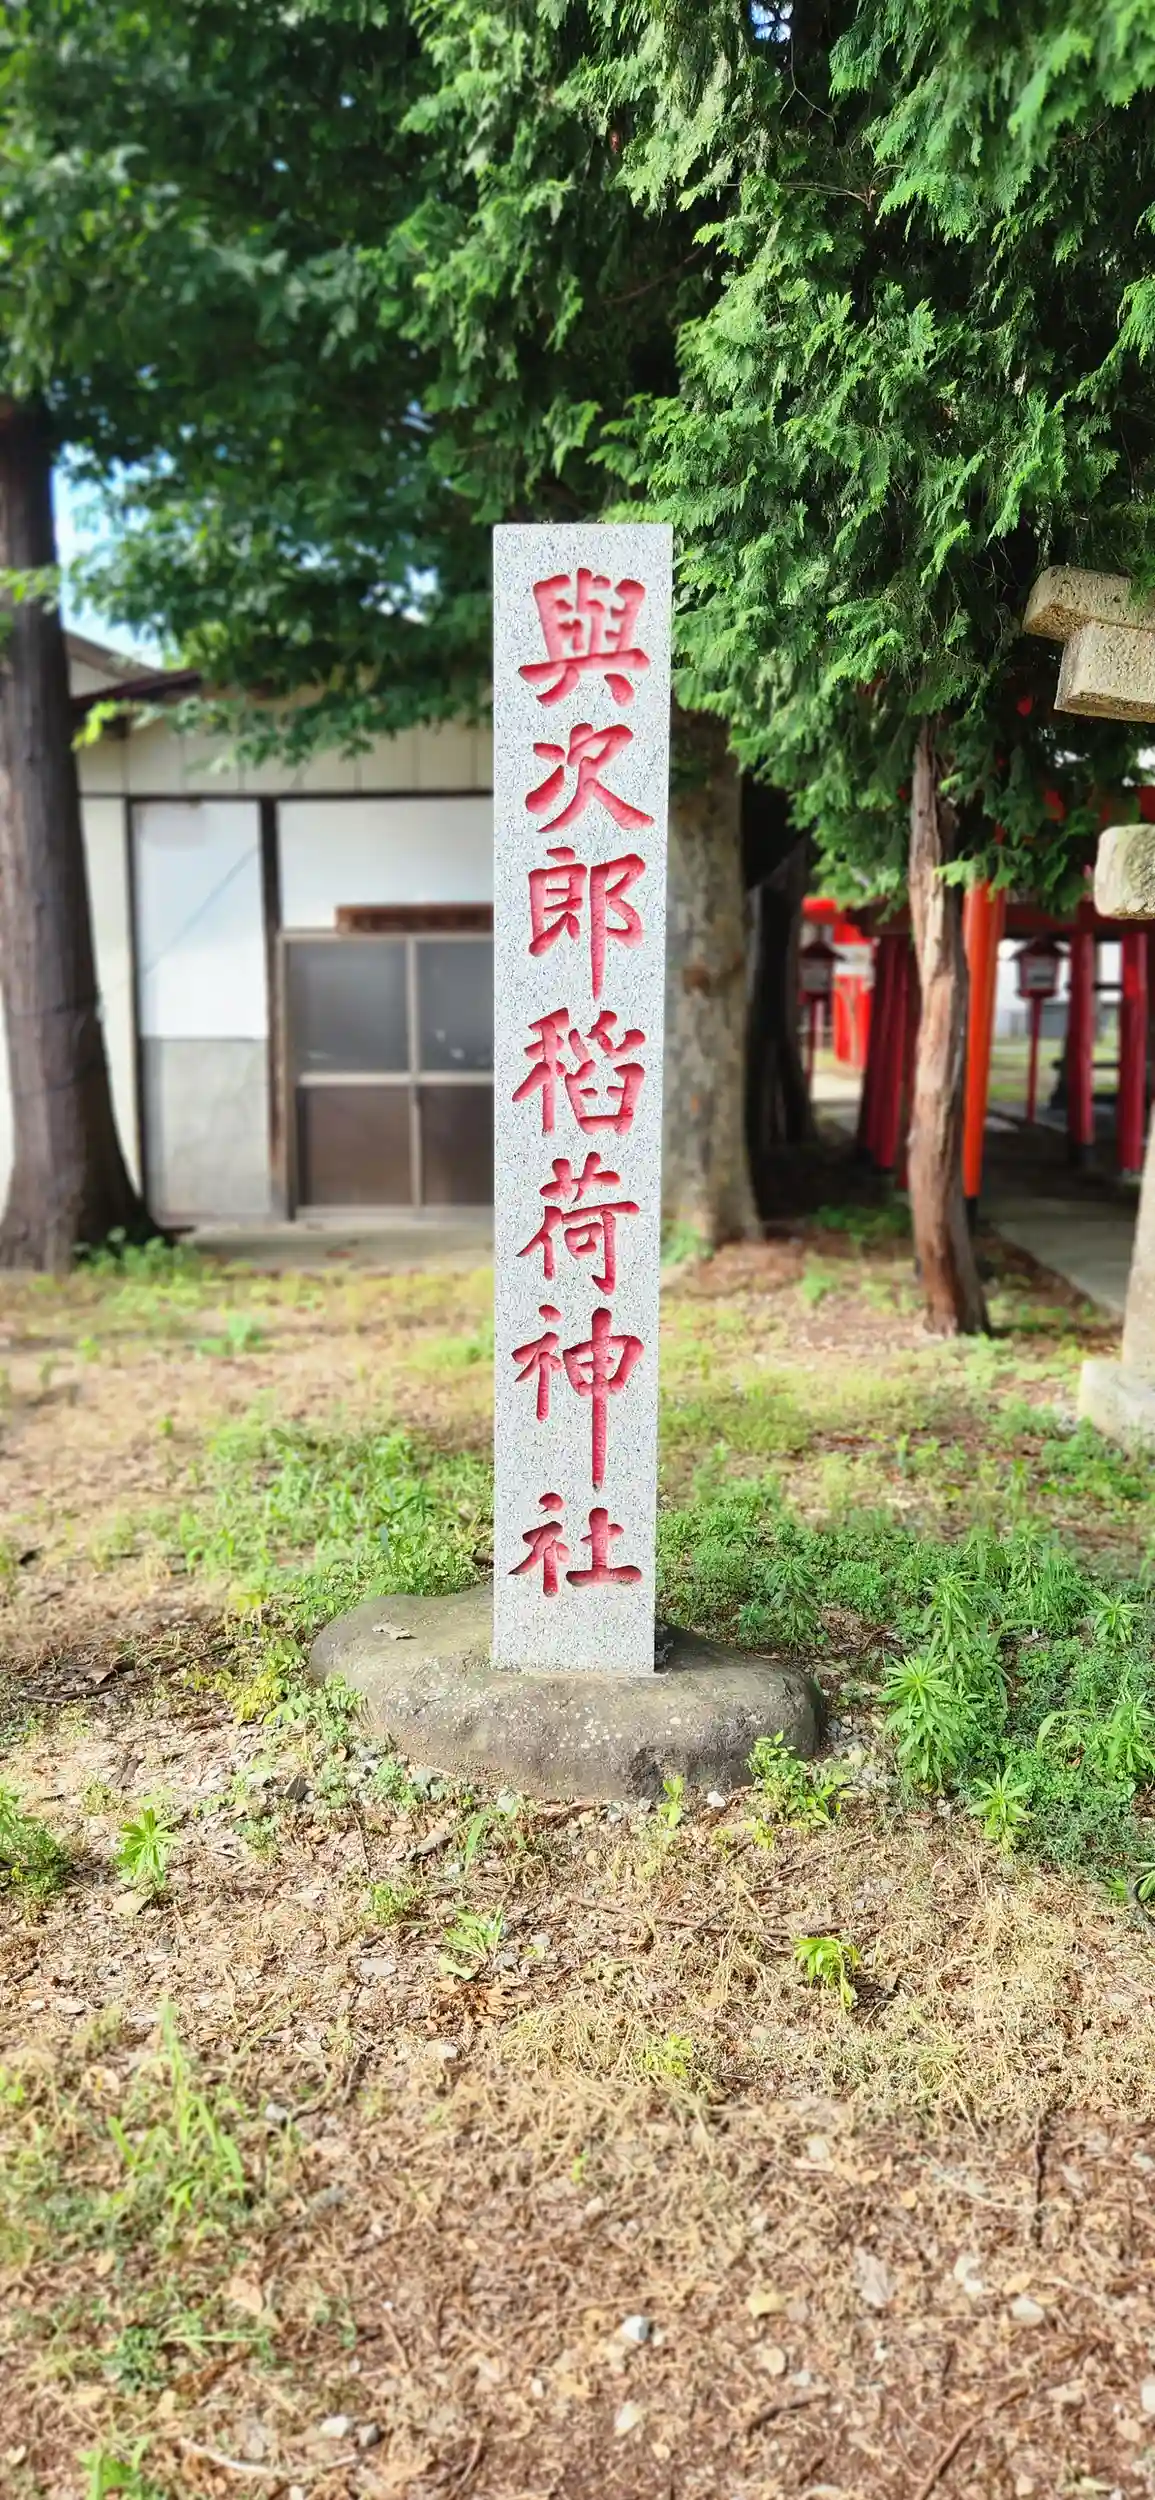 與次郎稲荷神社